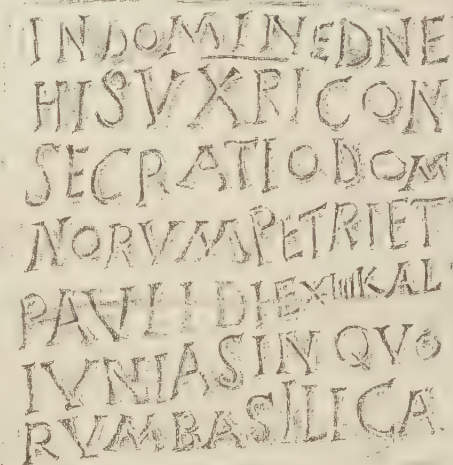 INDOMINEDNE
HISVXRICON
SECRATIODOM
NORVMPETRIET
PAVLIDIEXIIIIKAL
IVNIASINQVO
RVMBASILICA